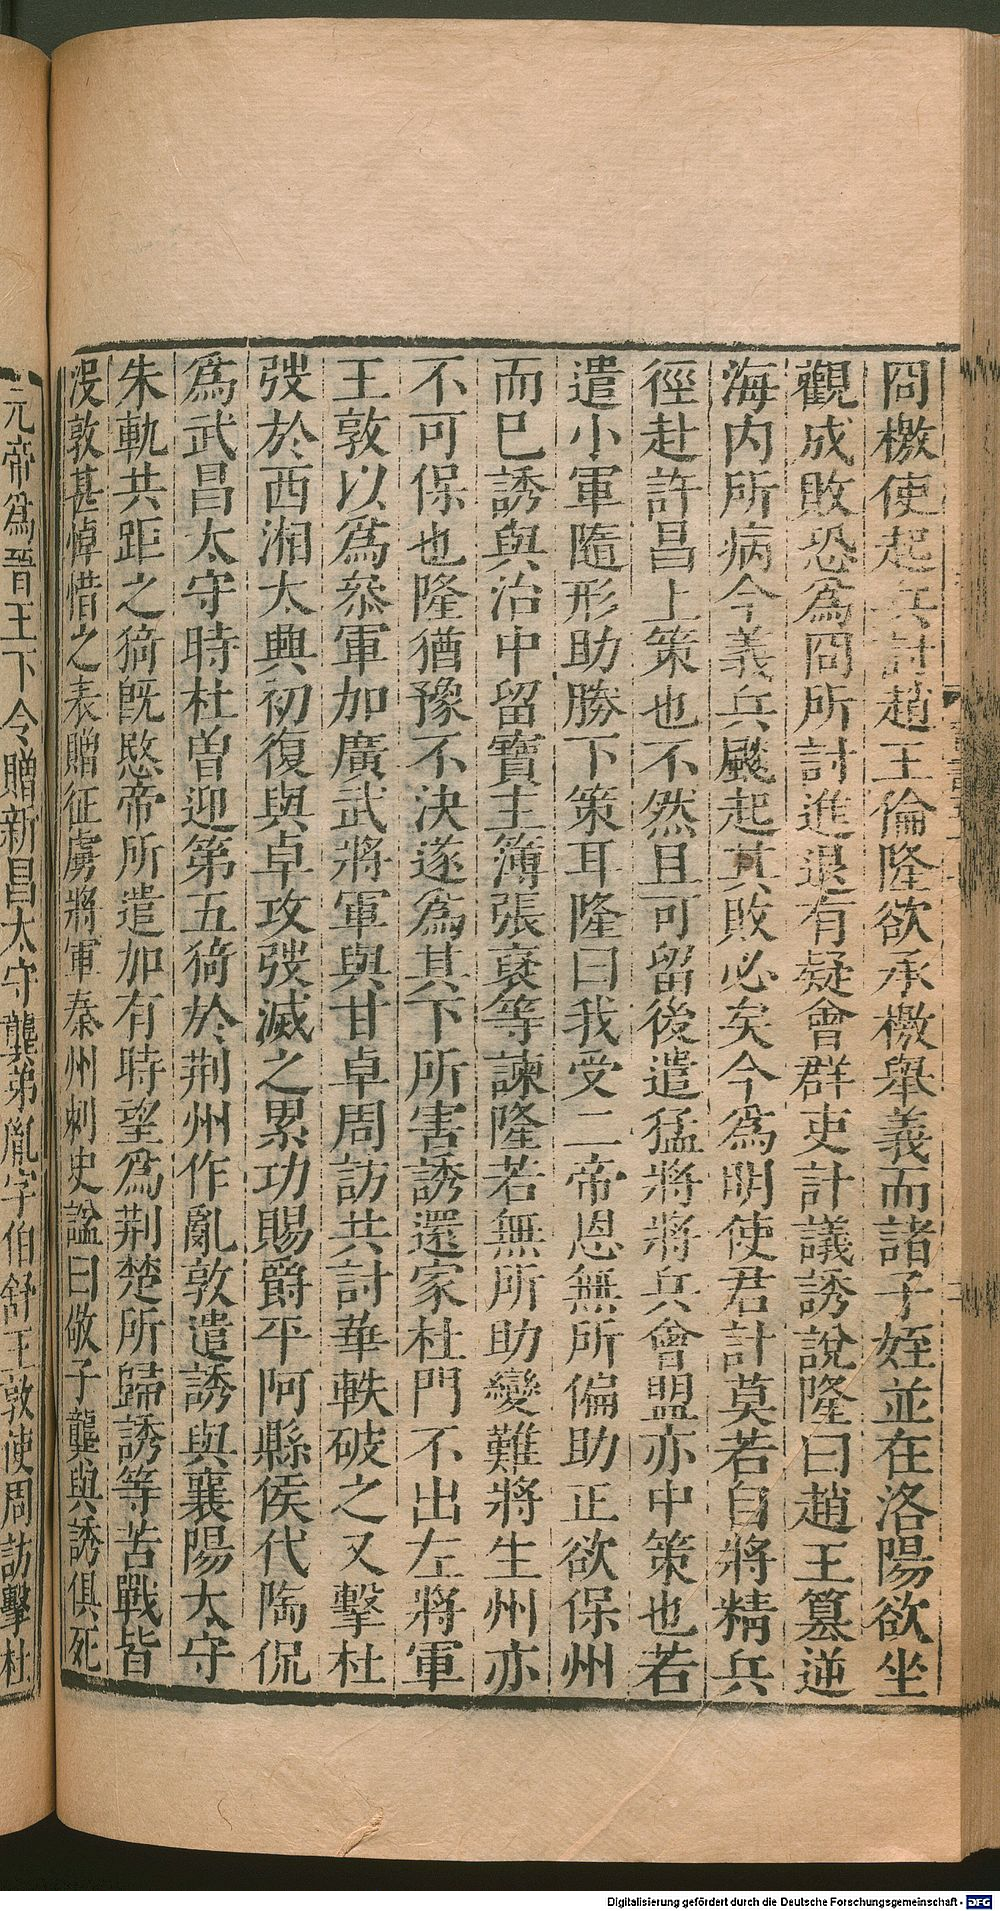 冏檄使起兵討趙王倫隆欲承檄舉義而諸子姪並在洛陽欲坐
觀成敗恐爲冏所討進退有疑會群吏計議誘說隆曰趙王簒逆
海內所病今義兵颷起其敗必矣今爲明使君計莫若自將精兵
徑赴許昌上策也不然且可留後遣猛將將兵會盟亦中策也若
遣小軍隨形助勝下策耳隆曰我受二帝恩無所偏助正欲保州
而已誘與治中留寶主簿張褒等諫隆若無所助變難將生州亦
不可保也隆猶豫不決遂爲其下所害誘還家杜門不出左將軍
王敦以爲叅軍加廣武將軍與甘卓周訪共討華軼破之又擊杜
弢於西湘太興初復與卓攻弢滅之累功賜爵平阿縣侯代陶侃
爲武昌太守時杜曽迎第五猗於荆州作亂敦遣誘與襄陽太守
朱軌共距之猗旣愍帝所遣加有時望爲荆楚所歸誘等苦戰皆
沒敦甚悼惜之表贈征虜將軍秦州刺史諡曰敬子龔與誘俱死
元帝爲晉王下令贈新昌太守龔弟胤字伯舒王敦使周訪擊杜
Digitalisierung gefördert durch die Deutsche Forschungsgemeinschaft - DFG